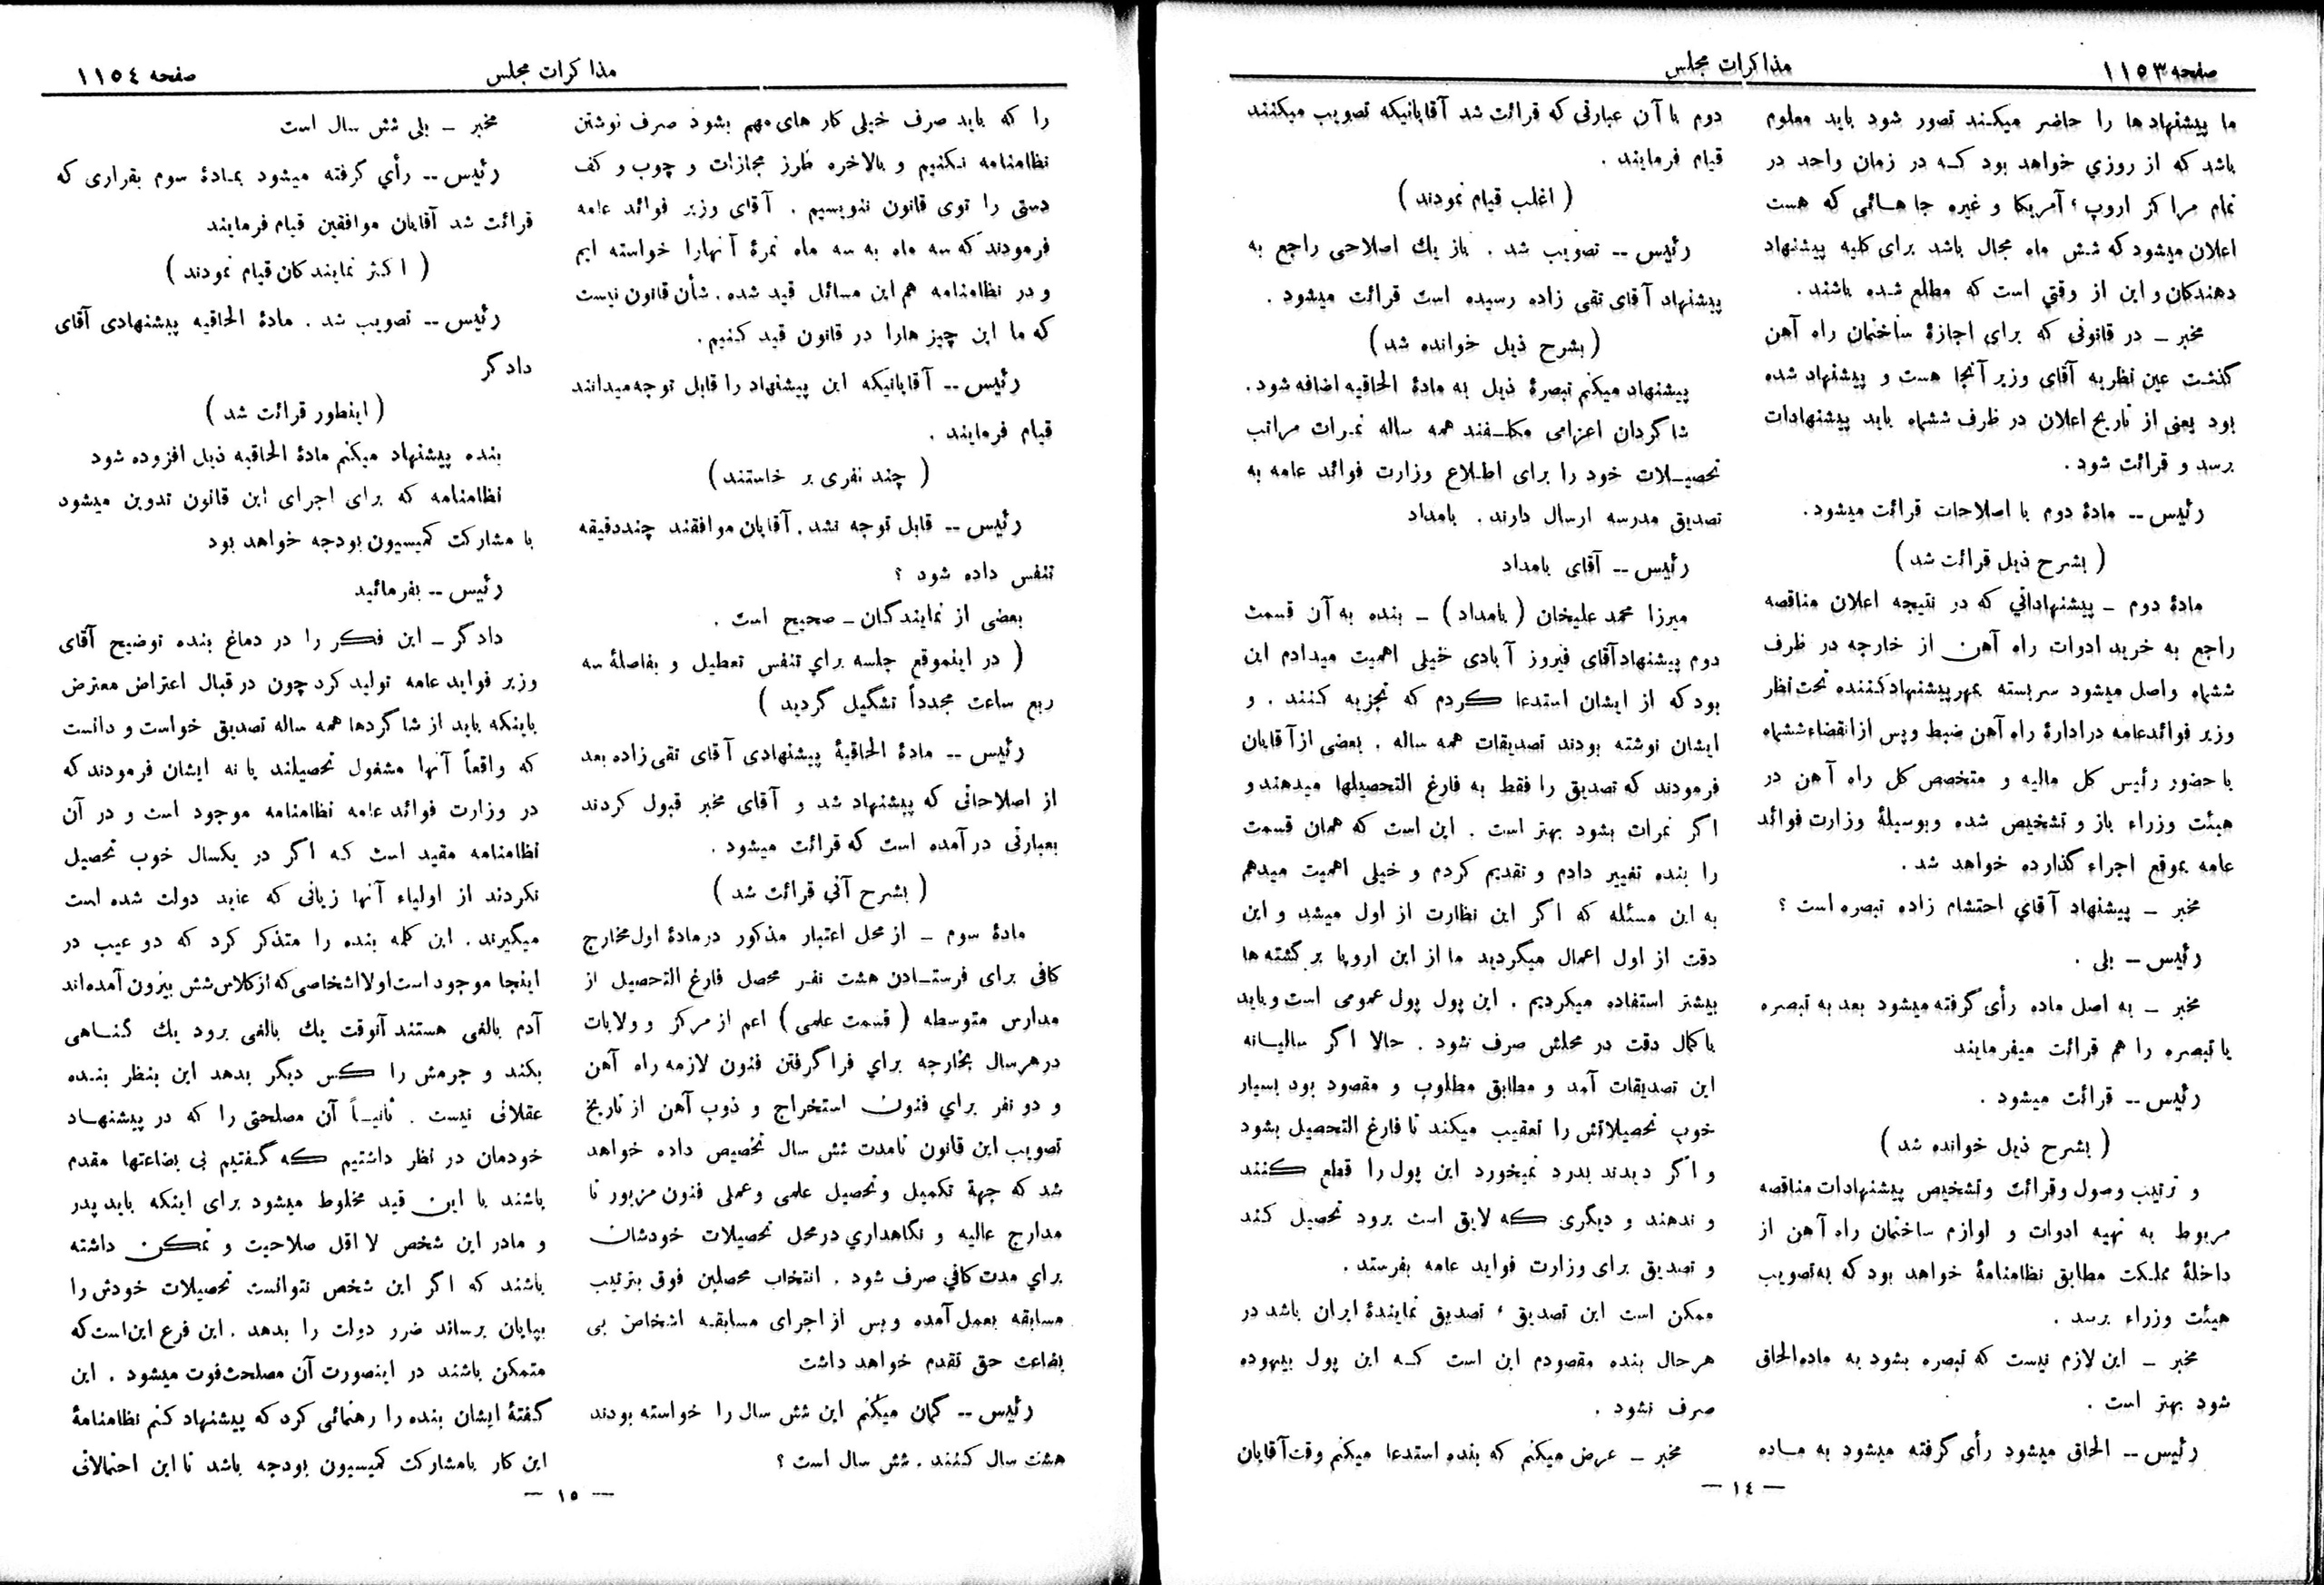 صفحه ۱۱۵۳
مذاکرات مجلس
ما پیشنهادها را حاضر میکنند تصور شود باید معلوم
باشد که از روزي خواهد بود کـه در زمان واحد در
تمام مراکز اروپ ، آمریکا و غیره جا هـائی که هست
اعلان میشود که شش ماه مجال باشد برای کلیه پیشنهاد
دهندکان و این از وقتي است که مطلع شده باشند .
مخبر ــ در قانونی که برای اجازهٔ ساختمان راه آهن
گذشت عین نظریه آقای وزیر آنجا هست و پیشنهاد شده
بود یعنی از تاریخ اعلان در ظرف ششماه باید پیشنهادات
برسد و قرائت شود .
رئیس -- مادهٔ دوم با اصلاحات قرائت میشود .
( بشرح ذیل قرائت شد )
مادهٔ دوم ــ پیشنهاداتي که در نتیجه اعلان مناقصه
راجع به خرید ادوات راه آهن از خارجه در ظرف
ششماه واصل میشود سربسته بمهر پیشنهاد کننده تحت نظر
وزیر فوائد عامه در ادارهٔ راه آهن ضبط و پس از انقضاء ششماه
با حضور رئیس کل مالیه و متخصص کل راه آهن در
هیئت وزراء باز و تشخیص شده و بوسیلهٔ وزارت فوائد
عامه بموقع اجراء گذارده خواهد شد .
مخبر ــ پیشنهاد آقاي احتشام زاده تبصره است ؟
رئیس ــ بلی .
مخبر ــ به اصل ماده رأی گرفته میشود بعد به تبصره
یا تبصره را هم قرائت میفرمایند
رئیس -- قرائت میشود .
( بشرح ذیل خوانده شد )
و ترتیب وصول و قرائت و تشخیص پیشنهادات مناقصه
مربوط به تهیه ادوات و لوازم ساختمان راه آهن از
داخلهٔ مملکت مطابق نظامنامهٔ خواهد بود که به تصویب
هیئت وزراء برسد .
مخبر ــ این لازم نیست که تبصره بشود به ماده الحاق
شود بهتر است .
رئیس -- الحاق میشود رأی گرفته میشود به مـاده
دوم با آن عبارتی که قرائت شد آقایانیکه تصویب میکنند
قیام فرمایند .
( اغلب قیام نمودند )
رئیس -- تصویب شد . باز یك اصلاحی راجع به
پیشنهاد آقای تقی زاده رسیده است قرائت میشود .
( بشرح ذیل خوانده شد )
پیشنهاد میکنم تبصرهٔ ذیل به مادهٔ الحاقیه اضافه شود .
شاگردان اعزامی مکلـفند همه ساله نمـرات مراتب
تحصیـلات خود را برای اطلاع وزارت فوائد عامه به
تصدیق مدرسه ارسال دارند . بامداد
رئیس -- آقای بامداد
میرزا محمد علیخان ( بامداد ) ــ بنده به آن قسمت
دوم پیشنهاد آقای فیروز آبادی خیلی اهمیت میدادم این
بود که از ایشان استدعا کردم که تجزیه کنند . و
ایشان نوشته بودند تصدیقات همه ساله . بعضی از آقایان
فرمودند که تصدیق را فقط به فارغ التحصیلها میدهند و
اگر نمرات بشود بهتر است . این است که همان قسمت
را بنده تغییر دادم و تقدیم کردم و خیلی اهمیت میدهم
به این مسئله که اگر این نظارت از اول میشد و این
دقت از اول اعمال میگردید ما از این اروپا برگشته ها
بیشتر استفاده میکردیم . این پول پول عمومی است و باید
باکمال دقت در محلش صرف شود . حالا اگر سالیـانه
این تصدیقات آمد و مطابق مطلوب و مقصود بود بسیار
خوب تحصیلاتش را تعقیب میکند تا فارغ التحصیل بشود
و اگر دیدند بدرد نمیخورد این پول را قطع کنند
و ندهند و دیگری که لایق است برود تحصیل کند
و تصدیق برای وزارت فواید عامه بفرستد .
ممکن است این تصدیق ، تصدیق نمایندهٔ ایران باشد در
هر حال بنده مقصودم این است کـه این پول بیهوده
صرف نشود .
مخبر ــ عرض میکنم که بنده استدعا میکنم وقت آقایان
— ١٤ —
مذاکرات مجلس
صفحه ١١٥٤
را که باید صرف خیلی کار های مهم بشود صرف نوشتن
نظامنامه نـکنیم و بالاخره طرز مجازات و چوب و کف
دستی را توی قانون ننویسیم . آقای وزیر فوائد عامه
فرمودند که سه ماه به سه ماه نمرهٔ آنهارا خواسته ایم
و در نظامنامه هم این مسائل قید شده . شأن قانون نیست
که ما این چیز هارا در قانون قید کنیم .
رئیس -- آقایانیکه این پیشنهاد را قابل توجه میدانند
قیام فرمایند .
( چند نفری بر خاستند )
رئیس -- قابل توجه نشد . آقایان موافقند چنددقیقه
تنفس داده شود ؟
بعضی از نمایندگان ــ صحیح است .
( در اینموقع جلسه براي تنفس تعطیل و بفاصلهٔ سه
ربع ساعت مجدداً تشگیل گردید )
رئیس -- مادهٔ الحاقیهٔ پیشنهادی آقای تقی زاده بعد
از اصلاحاتی که پیشنهاد شد و آقای مخبر قبول کردند
بعبارتی در آمده است که قرائت میشود .
( بشرح آتی قرائت شد )
مادهٔ سوم ــ از محل اعتبار مذکور در مادهٔ اول مخارج
کافی برای فرستـادن هشت نفـر محصل فارغ التحصیل از
مدارس متوسطه ( قسمت علمی ) اعم از مرکز و ولایات
در هر سال بخارجه براي فرا گرفتن فنون لازمه راه آهن
و دو نفر براي فنون استخراج و ذوب آهن از تاریخ
تصویب این قانون تامدت شش سال تخصیص داده خواهد
شد که جهة تکمیل و تحصیل علمی و عملی فنون مزبور تا
مدارج عالیه و نگاهداري در محل تحصیلات خودشان
براي مدت کافي صرف شود . انتخاب محصلین فوق بترتیب
مسابقه بعمل آمده و پس از اجرای مسابقـه اشخاص بی
بضاعت حق تقدم خواهد داشت
رئیس -- گمان میکنم این شش سال را خواسته بودند
هشت سال کنند . شش سال است ؟
مخبر ــ بلی شش سال است
رئیس -- رأي گرفته میشود بمـادهٔ سوم بقراری که
قرائت شد آقایان موافقین قیام فرمایند
( اکثر نمایندکان قیام نمودند )
رئیس -- تصویب شد . مادهٔ الحاقیه پیشنهادی آقای
دادگر
( اینطور قرائت شد )
بنده پیشنهاد میکنم مادهٔ الحاقیه ذیل افزوده شود
نظامنامه که برای اجرای این قانون تدوین میشود
با مشارکت کمیسیون بودجه خواهد بود
رئیس -- بفرمائید
دادگر ــ این فکر را در دماغ بنده توضیح آقای
وزیر فواید عامه تولید کرد چون در قبال اعتراض معترض
باینکه باید از شاگردها همه ساله تصدیق خواست و دانست
که واقعاً آنها مشغول تحصیلند یا نه ایشان فرمودند که
در وزارت فوائد عامه نظامنامه موجود است و در آن
نظامنامه مقید است که اگر در یکسال خوب تحصیل
نکردند از اولیاء آنها زیانی که عاید دولت شده است
میگیرند . این کله بنده را متذکر کرد که دو عیب در
اینجا موجود است اولا اشخاصی که از کلاس شش بیرون آمده اند
آدم بالغی هستند آنوقت یك بالغی برود یك گنـاهی
بکند و جرمش را کس دیگر بدهد این بنظر بنـده
عقلائی نیست . ثانیـاً آن مصلحتی را که در پیشنهـاد
خودمان در نظر داشتیم که گـفتیم بی بضاعتها مقدم
باشند با این قید مخلوط میشود برای اینکه باید پدر
و مادر این شخص لا اقل صلاحیت و تمکن داشته
باشند که اگر این شخص نتوانست تحصیلات خودش را
بپایان برساند ضرر دولت را بدهد . این فرع این است که
متمکن باشند در اینصورت آن مصلحت فوت میشود . این
گـفتهٔ ایشان بنده را رهنمائی کرد که پیشنهاد کنم نظامنامهٔ
این کار بامشارکت کمیسیون بودجه باشد تا این احتمالاتی
— ١٥ —